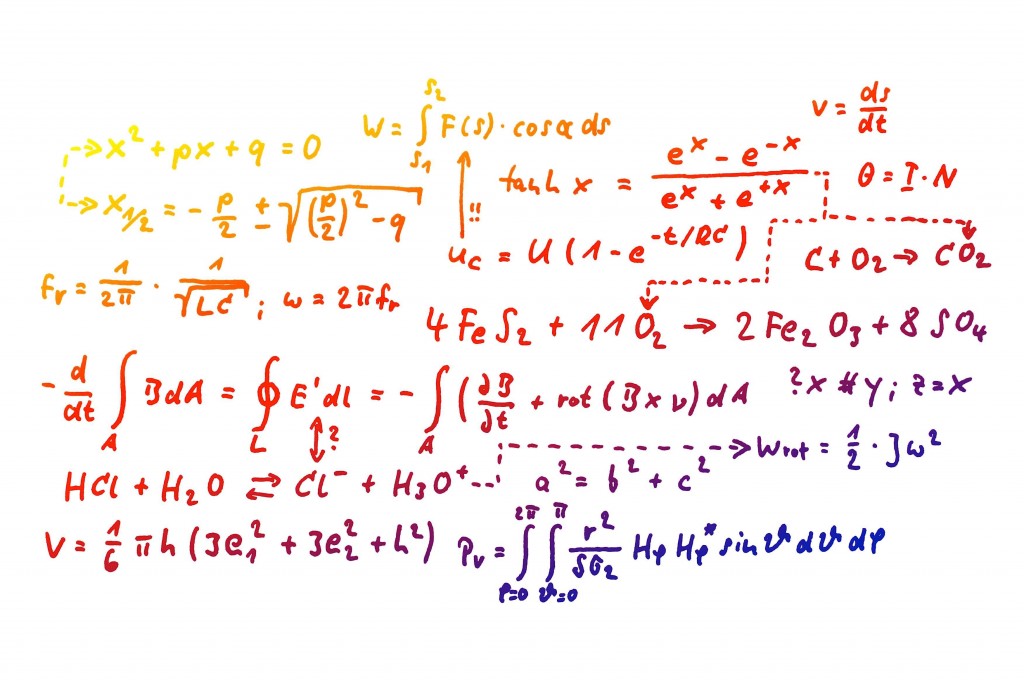 x² + px + q = 0
W = ∫_{s1}^{s2} F(s) · cos α ds
v = ds/dt
x_{1/2} = - p/2 ± √((p/2)² - q)
!!
tanh x = (e^x - e^{-x})/(e^x + e^{+x})
θ = I · N
u_c = U (1 - e^{-t/RC})
C + O₂ → CO₂
f_r = 1/2π · 1/√LC ; ω = 2πf_r
4 FeS₂ + 11 O₂ → 2 Fe₂O₃ + 8 SO₄
- d/dt ∫_A B dA = ∮_L E' dl = - ∫_A (∂B/∂t + rot (B x v) dA
? x # y ; z = x
?
W_rot = 1/2 · J ω²
HCl + H₂O ⇄ Cl⁻ + H₃O⁺
a² = b² + c²
V = 1/6 π h (3e₁² + 3e₂² + h²)
P_v = ∫_{φ=0}^{2π} ∫_{ϑ=0}^{π} r²/Sσ₂ H_φ H_φ* sin ϑ dϑ dφ